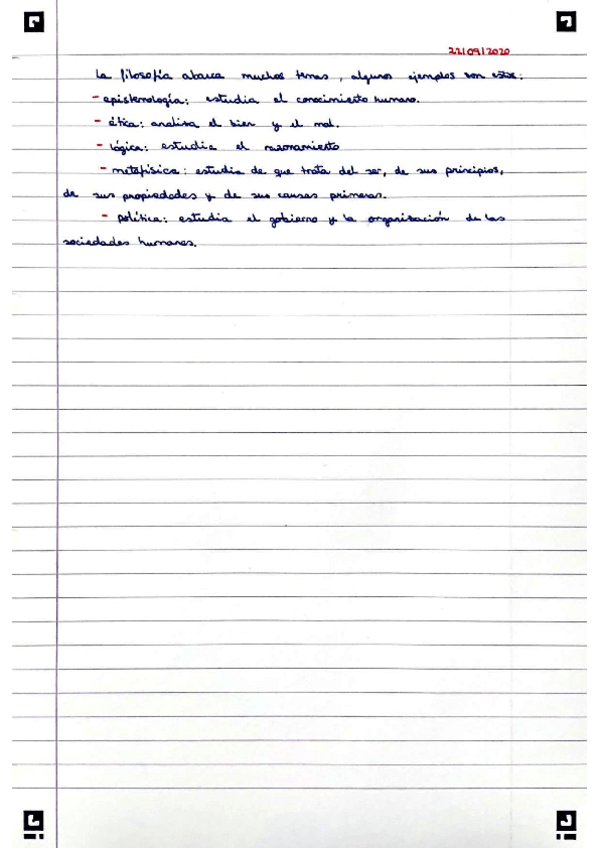 22/09/2020
La filosofía abarca muchos temas, algunos ejemplos son estos:
- epistemología: estudia el conocimiento humano.
- ética: analiza el bien y el mal.
- lógica: estudia el razonamiento
- metafísica: estudia de que trata del ser, de sus principios,
de sus propiedades y de sus causas primeras.
- política: estudia el gobierno y la organización de las
sociedades humanas.